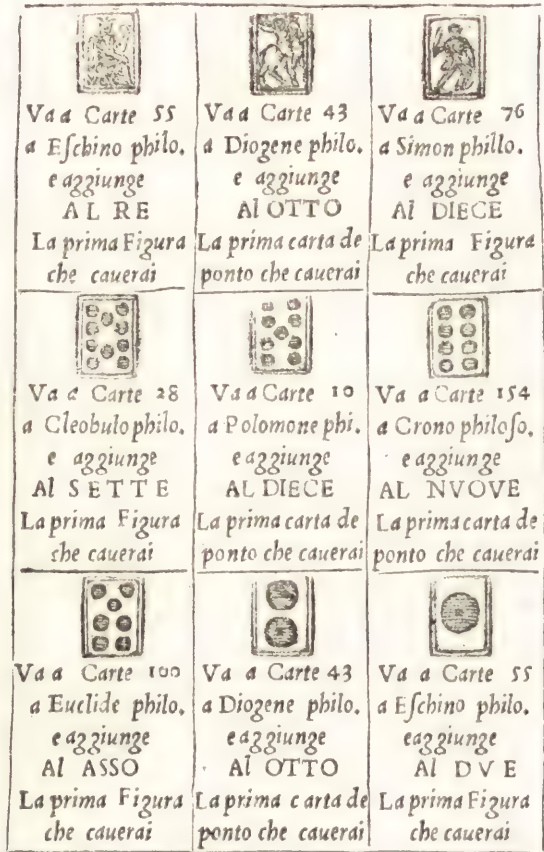 Va a Carte 55
a Eſchino philo.
e aggiunge
AL RE
La prima Figura
che cauerai
Va a Carte 43
a Diogene philo.
e aggiunge
Al OTTO
La prima carta de
ponto che cauerai
Va a Carte 76
a Simon phillo.
e aggiunge
Al DIECE
La prima Figura
che cauerai
Va a Carte 28
a Cleobulo philo.
e aggiunge
Al SETTE
La prima Figura
che cauerai
Va a Carte 10
a Polomone phi.
e aggiunge
AL DIECE
La prima carta de
ponto che cauerai
Va a Carte 154
a Crono philoſo.
e aggiunge
AL NVOVE
La prima carta de
ponto che cauerai
Va a Carte 100
a Euclide philo.
e aggiunge
Al ASSO
La prima Figura
che cauerai
Va a Carte 43
a Diogene philo.
e aggiunge
Al OTTO
La prima carta de
ponto che cauerai
Va a Carte 55
a Eſchino philo.
e aggiunge
Al DVE
La prima Figura
che cauerai